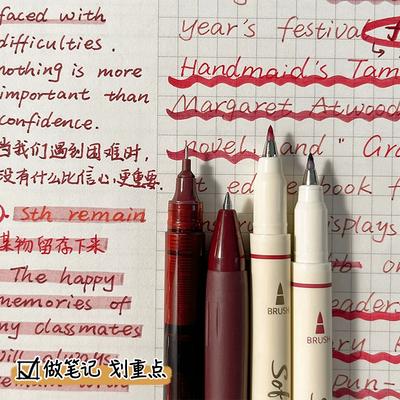 faced with
difficulties.
nothing is more
important than
confidence.
当我们遇到困难时,
没有什么比信心,更重要.
sth remain
某物留存下来
The happy
memories of
my classmates
will always
year's festival
Handmaid's
Margaret Atwood
novel and "
ed book f
displays
on
eaders
pun-
BRUSH
BRUSH
做笔记 划重点